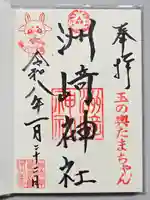 奉拝
玉の輿たまちゃん
洲崎神社
洲崎
神社
令和八年一月二十二日